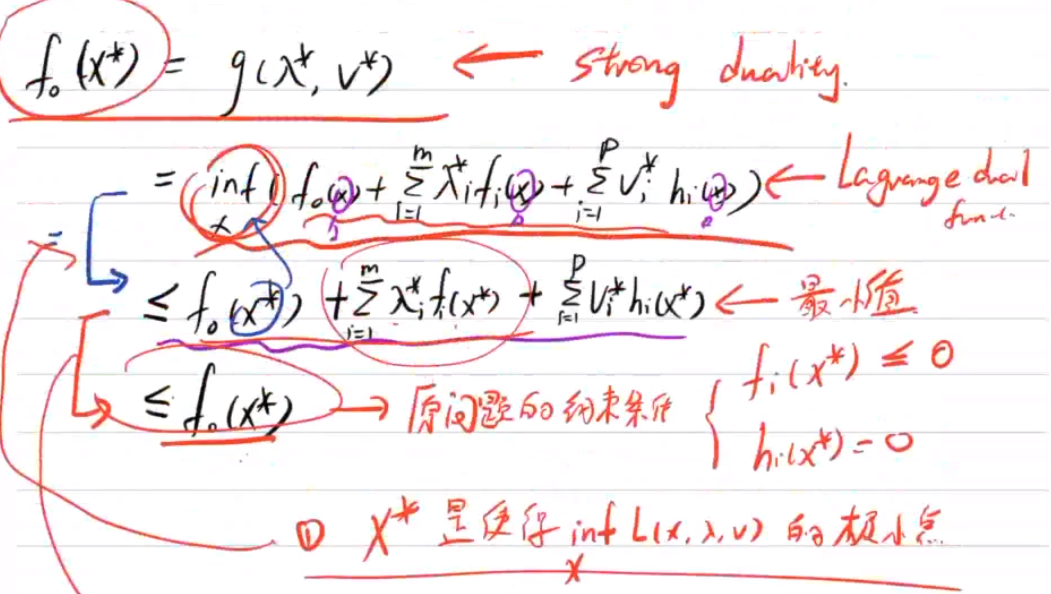 f₀(x*) = g(λ*, ν*) ← strong duality.
= inf_x ( f₀(x) + Σ_{i=1}^{m} λ*ᵢ fᵢ(x) + Σ_{i=1}^{p} ν*ᵢ hᵢ(x) ) ← Lagrange dual func.
=
≤ f₀(x*) + Σ_{i=1}^{m} λ*ᵢ fᵢ(x*) + Σ_{i=1}^{p} νᵢ* hᵢ(x*) ← 最小值.
≤ f₀(x*) → 原问题的约束条件 { fᵢ(x*) ≤ 0
hᵢ(x*) = 0
① X* 是使得 inf_x L(x, λ, ν) 的极小点